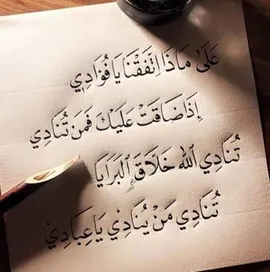 عَلَىٰ مَاذَا اِتَّفَقْنَا يَا فُؤَادِي
إِذَا ضَاقَتْ عَلَيْكَ فَمَنْ تُنَادِي
تُنَادِي اللهَ خَلَّاقَ الْبَرَايَا
تُنَادِي مَنْ يُنَادِي يَا عِبَادِي